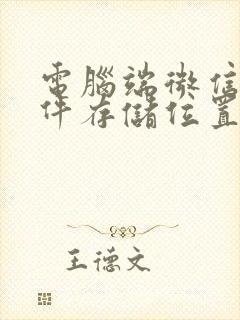 電腦端微信
件存儲位置
王德文